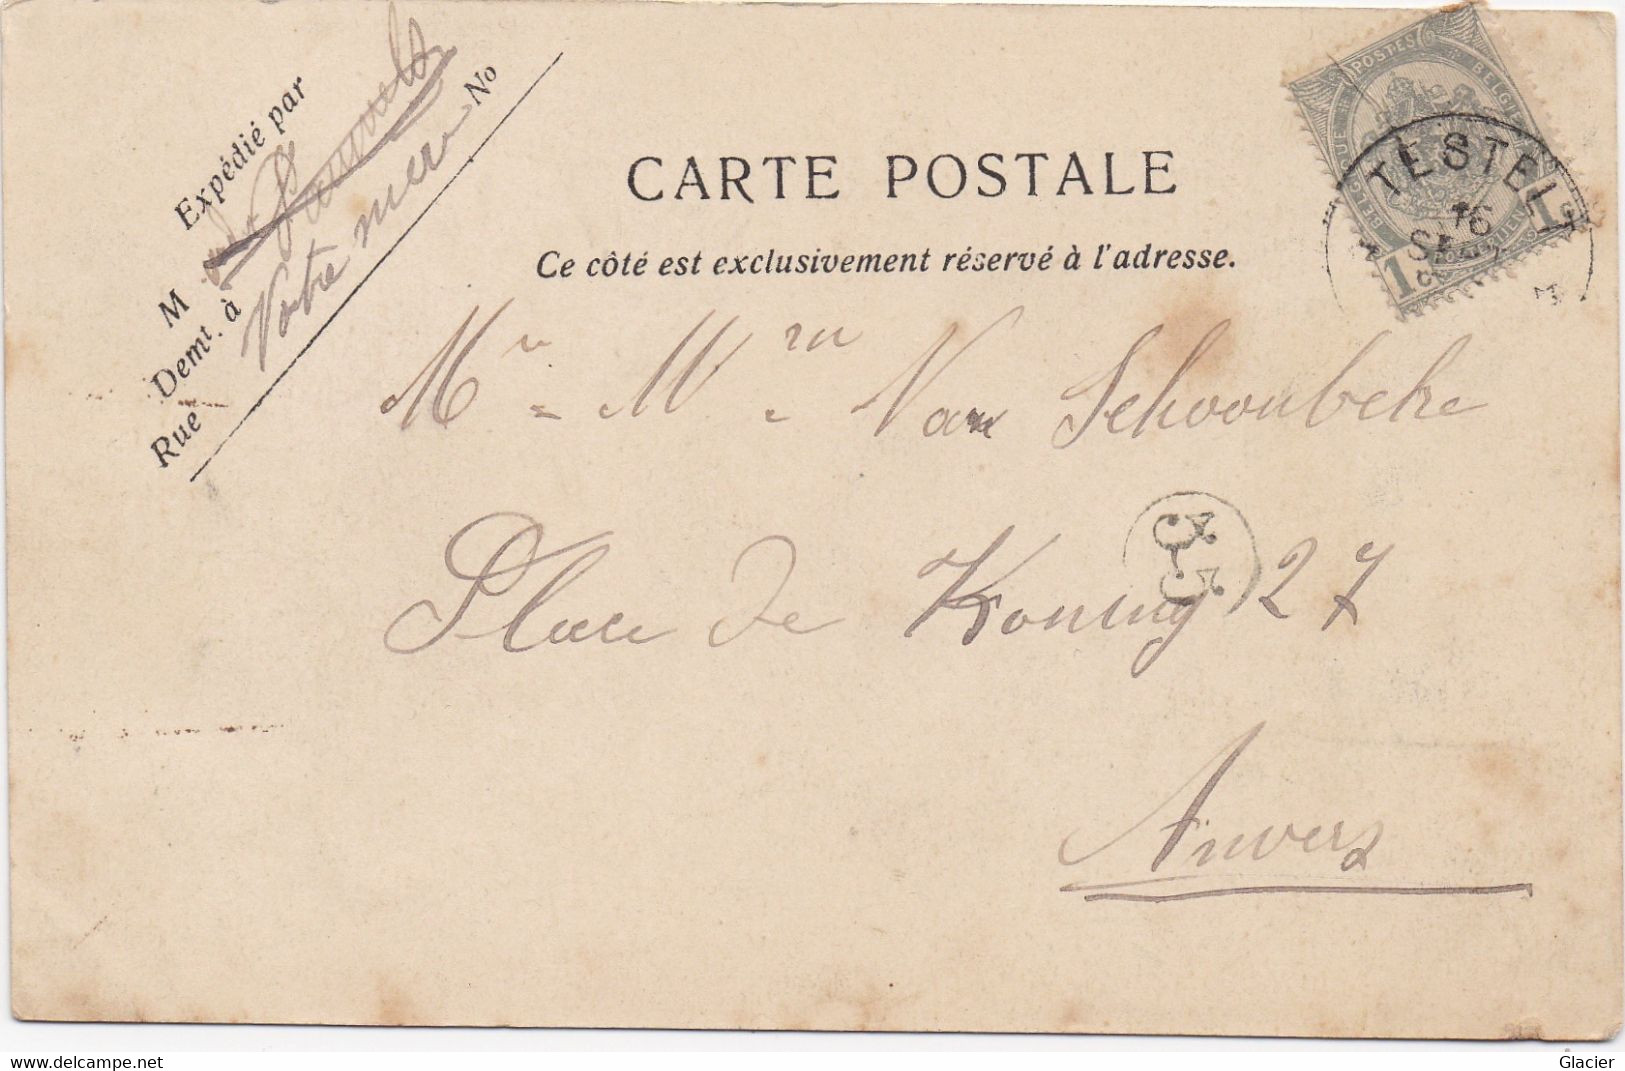 Expédié par
M
Demt. à Votre mère
Rue No
CARTE POSTALE
Ce côté est exclusivement réservé à l'adresse.
POSTES BELGIQUE BELGIE
1 c 1 c
TESTELT
16
SEPT
Mr - Mm - Van Schoonbeke
Place de Koning 27
Anvers
Glacier